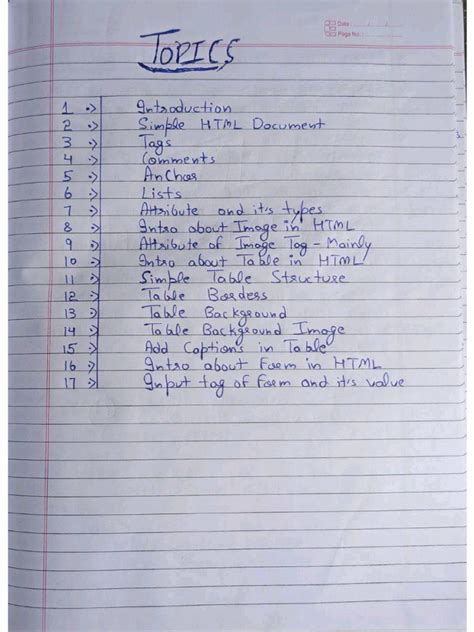 Date
Page No.
TOPICS
1 •> Introduction
2 •> Simple HTML Document
3 •> Tags
4 •> Comments
5 •> Anchor
6 •> Lists
7 •> Attribute and it's types
8 •> Intro about Image in HTML
9 •> Attribute of Image Tag - Mainly
10 •> Intro about Table in HTML
11 •> Simple Table Structure
12 •> Table Borders
13 •> Table Background
14 •> Table Background Image
15 •> Add Captions in Table
16 •> Intro about Form in HTML
17 •> Input tag of Form and it's value